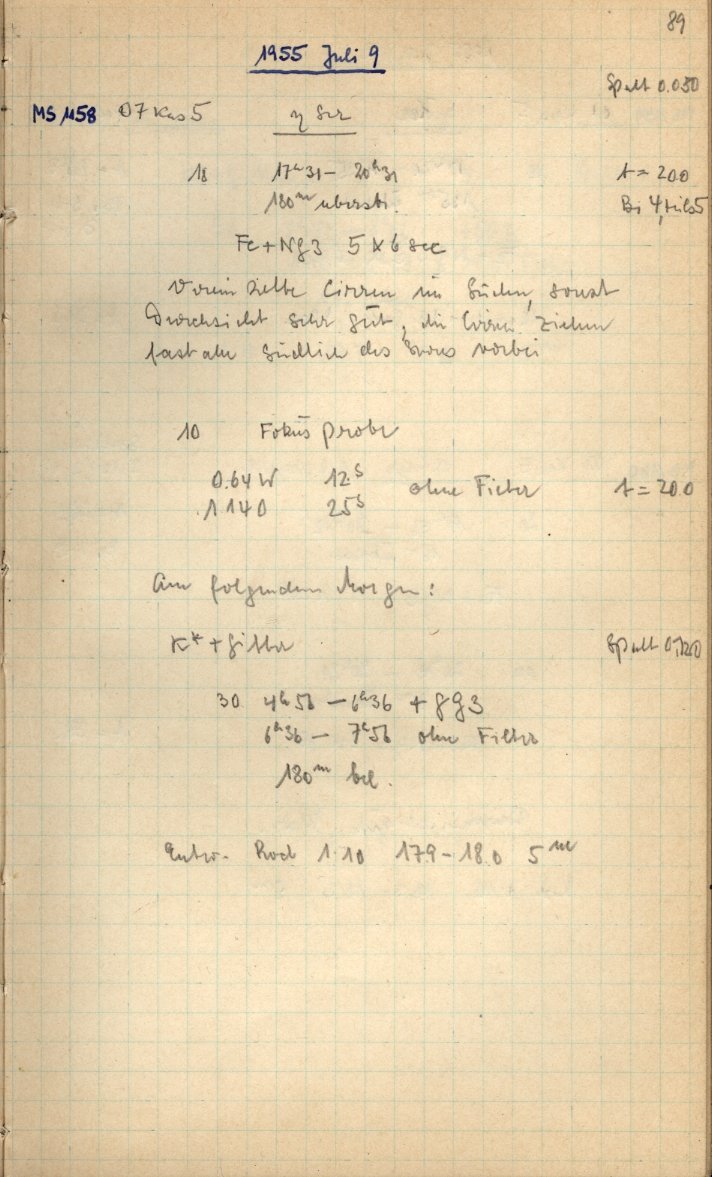 89
1955 Juli 9
Spalt 0.030
MS 1158 07 Kas 5 η Ser
18 17h31 - 20h31 t = 20.0
180m überstr. Bi 4, teils 5
Fe + Ng3 5 x 6 sec
Vereinzelte Cirren im Süden, sonst
Durchsicht sehr gut, die Cirren ziehen
fast alle südlich des vorbei
10 Fokusprobe
0.64 W 12s ohne Filter t = 20.0
1.14 O 25s
Am folgenden Morgen:
K* + Gitter Spalt 0,120
30 4h56 - 6h36 + GG3
6h36 - 7h56 ohne Filter
180m bel.
Entw. Rod 1:10 17.9 - 18.0 5m